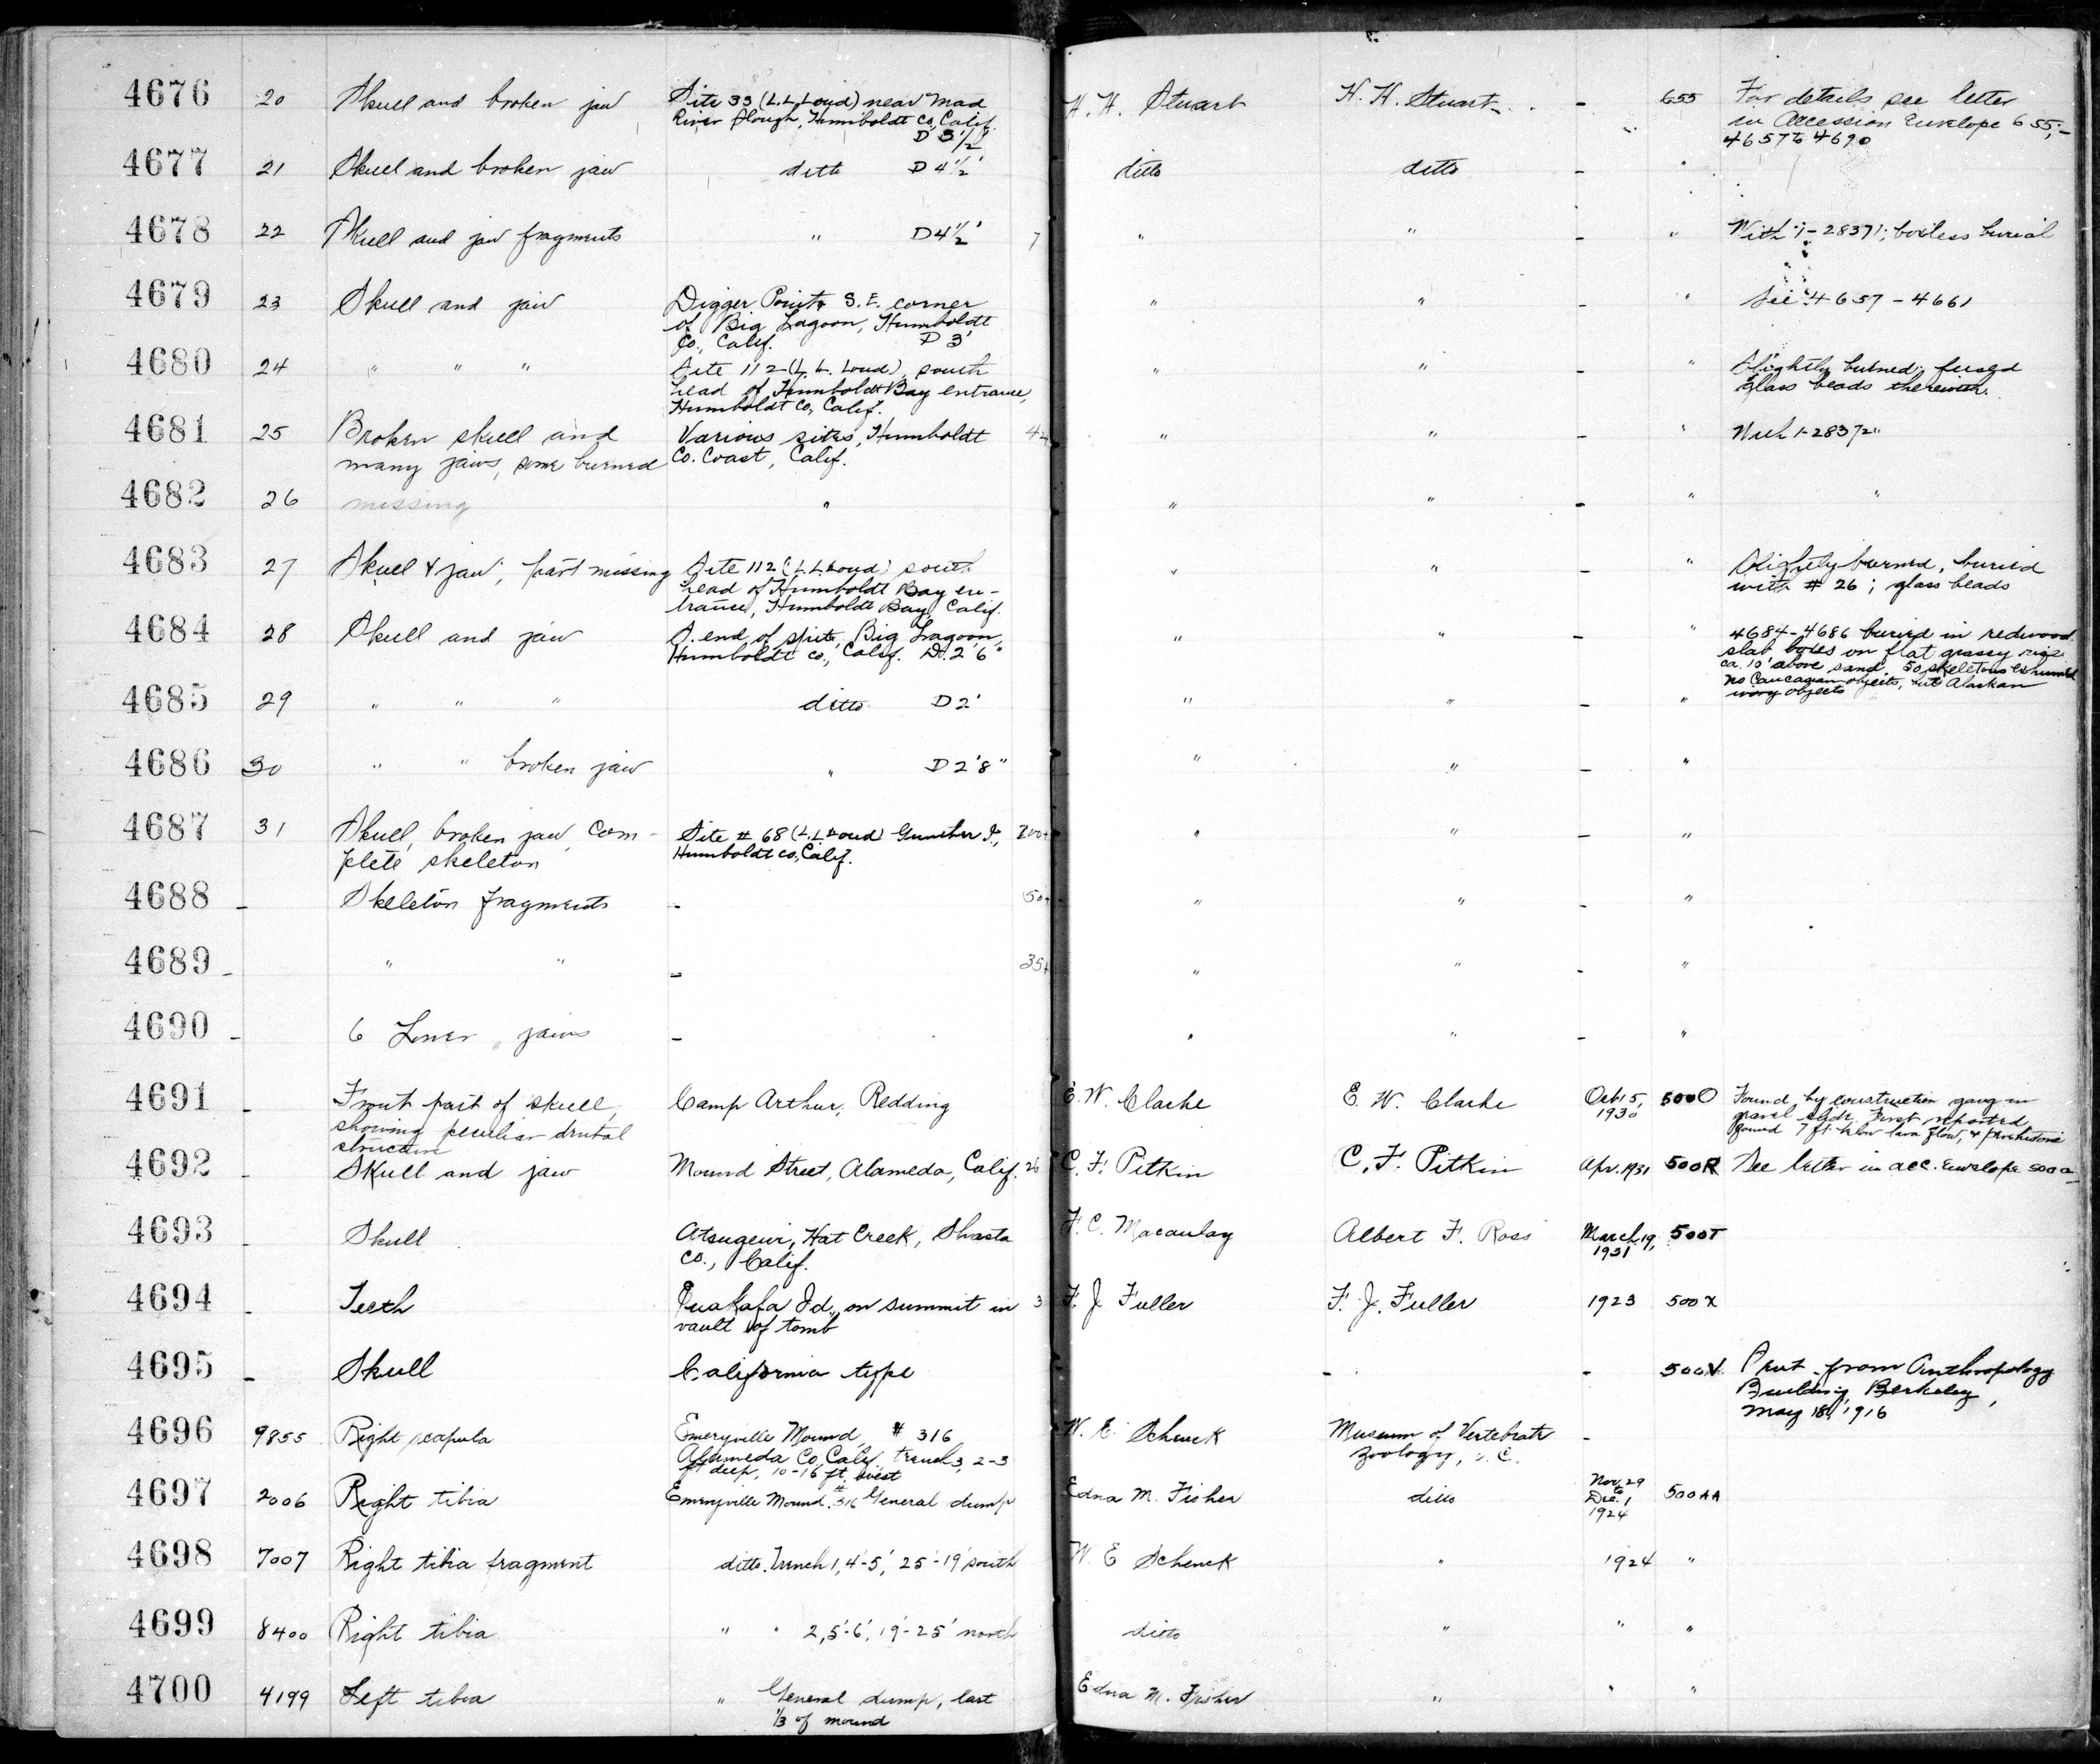 4676 20 Skull and broken jaw Site 33 (L.L. Loud) near Mad H. H. Stuart H. H. Stuart - 655 For details see letter
River Slough, Humboldt Co, Calif. in Accession Envelope 655;-
D 3 1/2' 4657 to 4690
4677 21 Skull and broken jaw ditto D 4 1/2' ditto ditto - "
4678 22 Skull and jaw fragments " D 4 1/2' 7 " " - " With 1-28371; boxless burial
4679 23 Skull and jaw Digger Point S.E. corner " " - " See 4657-4661
of Big Lagoon, Humboldt
Co., Calif. D 3'
4680 24 " " " Site 112 (L. L. Loud), south " " - " Slightly burned; fused
head of Humboldt Bay entrance, glass beads therewith.
Humboldt Co, Calif.
4681 25 Broken skull and Various sites, Humboldt " " - " With 1-28372
many jaws, some burned Co. Coast, Calif.
4682 26 missing " " " - " "
4683 27 Skull & jaw, part missing Site 112 (L.L. Loud) south " " - " Slightly burned, buried
head of Humboldt Bay en- with # 26; glass beads
trance, Humboldt Bay, Calif.
4684 28 Skull and jaw S. end of spit, Big Lagoon, " " - " 4684-4686 buried in redwood
Humboldt Co., Calif. D. 2'6" slab boxes on flat grassy
ca. 10' above sand. 50 skeletons exhumed
no Caucasian objects, but Alaskan
ivory objects
4685 29 " " " ditto D 2' " " - "
4686 30 " " broken jaw " D 2'8" " " - "
4687 31 Skull, broken jaw, Com- Site # 68 (L.L. Loud) Gunther I., 200+ " " - "
plete skeleton Humboldt Co., Calif.
4688 - Skeleton fragments - 50+ " " - "
4689 - " " - 35+ " " - "
4690 - 6 Lower jaws - " " - "
4691 - Front part of skull, Camp Arthur, Redding E. W. Clarke E. W. Clarke Oct 15, 1930 500O Found by construction gang in
showing peculiar dental gravel slide. First reported
structure found 7 ft. below lava flow, & prehistoric
4692 - Skull and jaw Mound Street, Alameda, Calif. 26 C. F. Pitkin C. F. Pitkin Apr. 1931 500R See letter in acc. envelope
4693 - Skull Atsugewi, Hat Creek, Shasta F. C. Macaulay Albert F. Ross March 19, 1931 500T
Co., Calif.
4694 - Teeth on summit in 3 F. J. Fuller F. J. Fuller 1923 500X
vault of tomb
4695 - Skull California type - - 500 Sent from Anthropology
Building, Berkeley,
May 18, 1916
4696 9855 Right scapula Emeryville Mound # 316 W. E. Schenck Museum of Vertebrate -
Alameda Co, Calif. trench 3, 2-3 Zoology, U. C.
ft deep, 10-16 ft. west
4697 2006 Right tibia Emeryville Mound. #316 General dump Edna M. Fisher ditto Nov. 29 to Dec. 1 1924 500AA
4698 7007 Right tibia fragment ditto. Trench 1, 4'-5', 25'-19' south W. E Schenck " 1924 "
4699 8400 Right tibia " " 2, 5'-6', 19'-25' north ditto " " "
4700 4199 Left tibia " General dump, last Edna M. Fisher " " "
1/3 of mound